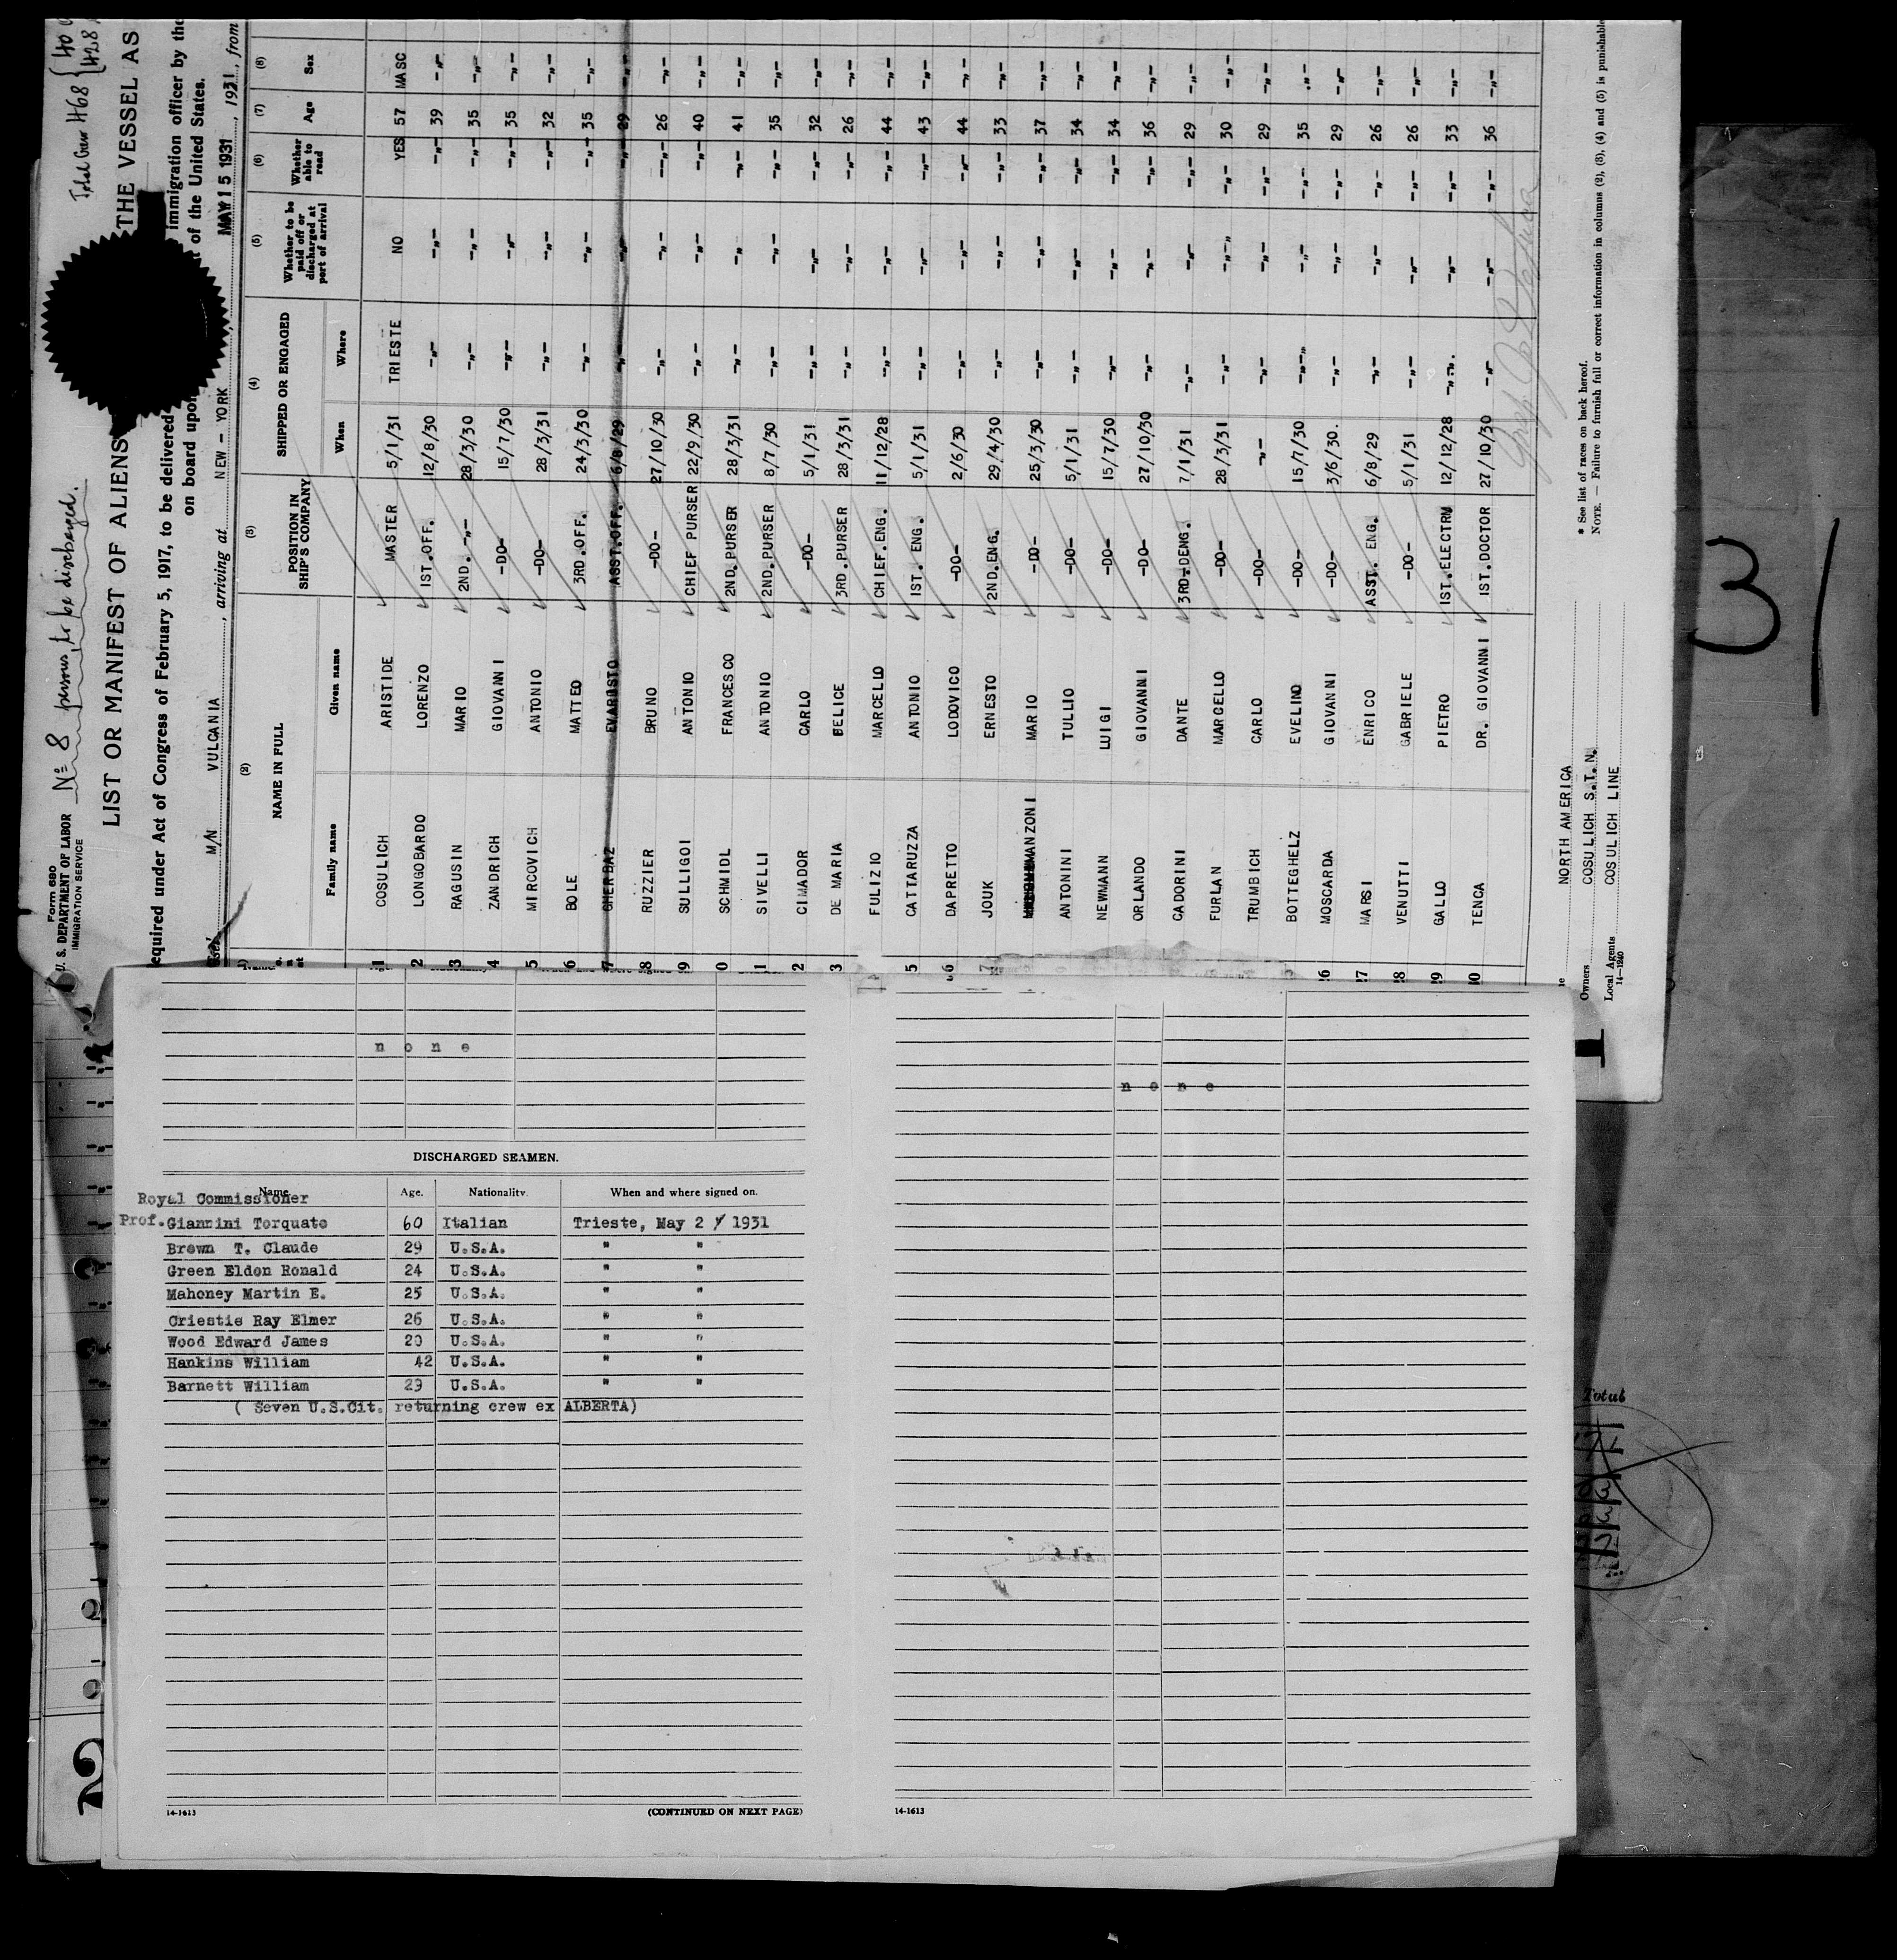 Form 680
U. S. DEPARTMENT OF LABOR
IMMIGRATION SERVICE
No 8 persons to be discharged.
Total Crew 468 { 40
428
LIST OR MANIFEST OF ALIENS THE VESSEL AS
equired under Act of Congress of February 5, 1917, to be delivered immigration officer by the
on board upon t of the United States.
M/N VULCANIA, arriving at NEW - YORK MAY 15 1931, 1931, from
(2) (3) (4) (5) (6) (7) (8)
NAME IN FULL POSITION IN SHIP'S COMPANY SHIPPED OR ENGAGED Whether to be paid off or discharged at port of arrival Whether able to read Age Sex
Family name Given name When Where
1 COSULICH ARISTIDE MASTER 5/1/31 TRIESTE NO YES 57 MASC
2 LONGOBARDO LORENZO 1ST.OFF. 12/8/30 -"- -"- -"- 39 -"-
3 RAGUSIN MARIO 2ND. -"- 28/3/30 -"- -"- -"- 35 -"-
4 ZANDRICH GIOVANNI -DO- 15/7/30 -"- -"- -"- 35 -"-
5 MIRCOVICH ANTONIO -DO- 28/3/31 -"- -"- -"- 32 -"-
6 BOLE MATTEO 3RD.OFF. 24/3/30 -"- -"- -"- 35 -"-
7 GHERBAZ EVARISTO ASST.OFF. 6/8/29 -"- -"- -"- 29 -"-
8 RUZZIER BRUNO -DO- 27/10/30 -"- -"- -"- 26 -"-
9 SULLIGOI ANTONIO CHIEF PURSER 22/9/30 -"- -"- -"- 40 -"-
0 SCHMIDL FRANCESCO 2ND.PURSER 28/3/31 -"- -"- -"- 41 -"-
1 SIVELLI ANTONIO 2ND.PURSER 8/7/30 -"- -"- -"- 35 -"-
2 CIMADOR CARLO -DO- 5/1/31 -"- -"- -"- 32 -"-
3 DE MARIA FELICE 3RD.PURSER 28/3/31 -"- -"- -"- 26 -"-
FULIZIO MARCELLO CHIEF.ENG. 11/12/28 -"- -"- -"- 44 -"-
5 CATTARUZZA ANTONIO 1ST. ENG. 5/1/31 -"- -"- -"- 43 -"-
6 DAPRETTO LODOVICO -DO- 2/6/30 -"- -"- -"- 44 -"-
7 JOUK ERNESTO 2ND.ENG. 29/4/30 -"- -"- -"- 33 -"-
MANZONI MARIO -DO- 25/3/30 -"- -"- -"- 37 -"-
ANTONINI TULLIO -DO- 5/1/31 -"- -"- -"- 34 -"-
NEWMANN LUIGI -DO- 15/7/30 -"- -"- -"- 34 -"-
ORLANDO GIOVANNI -DO- 27/10/30 -"- -"- -"- 36 -"-
CADORINI DANTE 3RD.ENG. 7/1/31 -"- -"- -"- 29 -"-
FURLAN MARCELLO -DO- 28/3/31 -"- -"- -"- 30 -"-
TRUMBICH CARLO -DO- -"- -"- -"- -"- 29 -"-
BOTTEGHELZ EVELINO -DO- 15/7/30 -"- -"- -"- 35 -"-
26 MOSCARDA GIOVANNI -DO- 3/6/30. -"- -"- -"- 29 -"-
27 MARSI ENRICO ASST. ENG. 6/8/29 -"- -"- -"- 26 -"-
28 VENUTTI GABRIELE -DO- 5/1/31 -"- -"- -"- 26 -"-
29 GALLO PIETRO 1ST.ELECTRN 12/12/28 -"- -"- -"- 33 -"-
0 TENCA DR. GIOVANNI 1ST.DOCTOR 27/10/30 -"- -"- -"- 36 -"-
NORTH AMERICA
Owners COSULICH S.T.N.
Local Agents COSULICH LINE
14-1240
* See list of races on back hereof.
NOTE. — Failure to furnish full or correct information in columns (2), (3), (4) and (5) is punishable
31
n o n e
DISCHARGED SEAMEN.
Name Age. Nationality. When and where signed on.
Royal Commissioner
Prof. Giannini Torquato 60 Italian Trieste, May 2 1931
Brown T. Claude 29 U.S.A. " "
Green Eldon Ronald 24 U.S.A. " "
Mahoney Martin E. 25 U.S.A. " "
Criestie Ray Elmer 26 U.S.A. " "
Wood Edward James 20 U.S.A. " "
Hankins William 42 U.S.A. " "
Barnett William 29 U.S.A. " "
( Seven U.S.Cit. returning crew ex ALBERTA)
14-1613
(CONTINUED ON NEXT PAGE)
n o n e
14-1613
Total
2